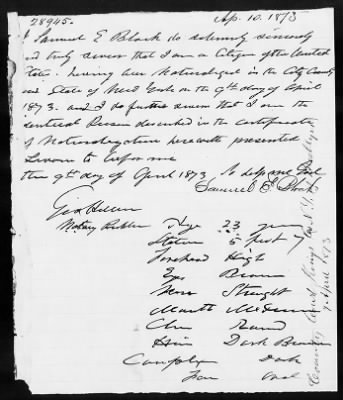 28945.
Ap. 10. 1873
I Samuel E Block do solemnly sincerely
and truly swear that I am a Citizen of the United
States. having been Naturalized in the City County
and State of New York on the 9th day of April
1873. and I do further swear that I am the
identical Person described in the certificate
of Naturalization herewith presented
Sworn to before me
this 9th day of April 1873 So help me God
Samuel E Block
Geo
Notary Public Age 23 years
Stature 5 feet 7
Forehead High
Eyes Brown
Nose Straight
Mouth Medium
Chin Round
Hair Dark Brown
Complex Dark
Face Oval
County Kings N.Y.
9 April 1873